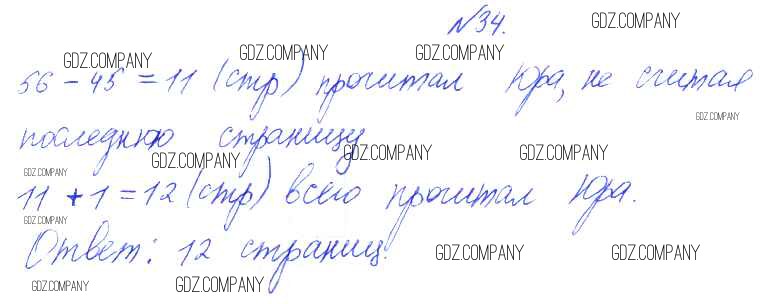 №34.
56 - 45 = 11 (стр) прочитал Юра, не считая
последнюю страницу
11 + 1 = 12 (стр) всего прочитал Юра.
Ответ: 12 страниц.
GDZ.COMPANY
GDZ.COMPANY
GDZ.COMPANY
GDZ.COMPANY
GDZ.COMPANY
GDZ.COMPANY
GDZ.COMPANY
GDZ.COMPANY
GDZ.COMPANY
GDZ.COMPANY
GDZ.COMPANY
GDZ.COMPANY
GDZ.COMPANY
GDZ.COMPANY